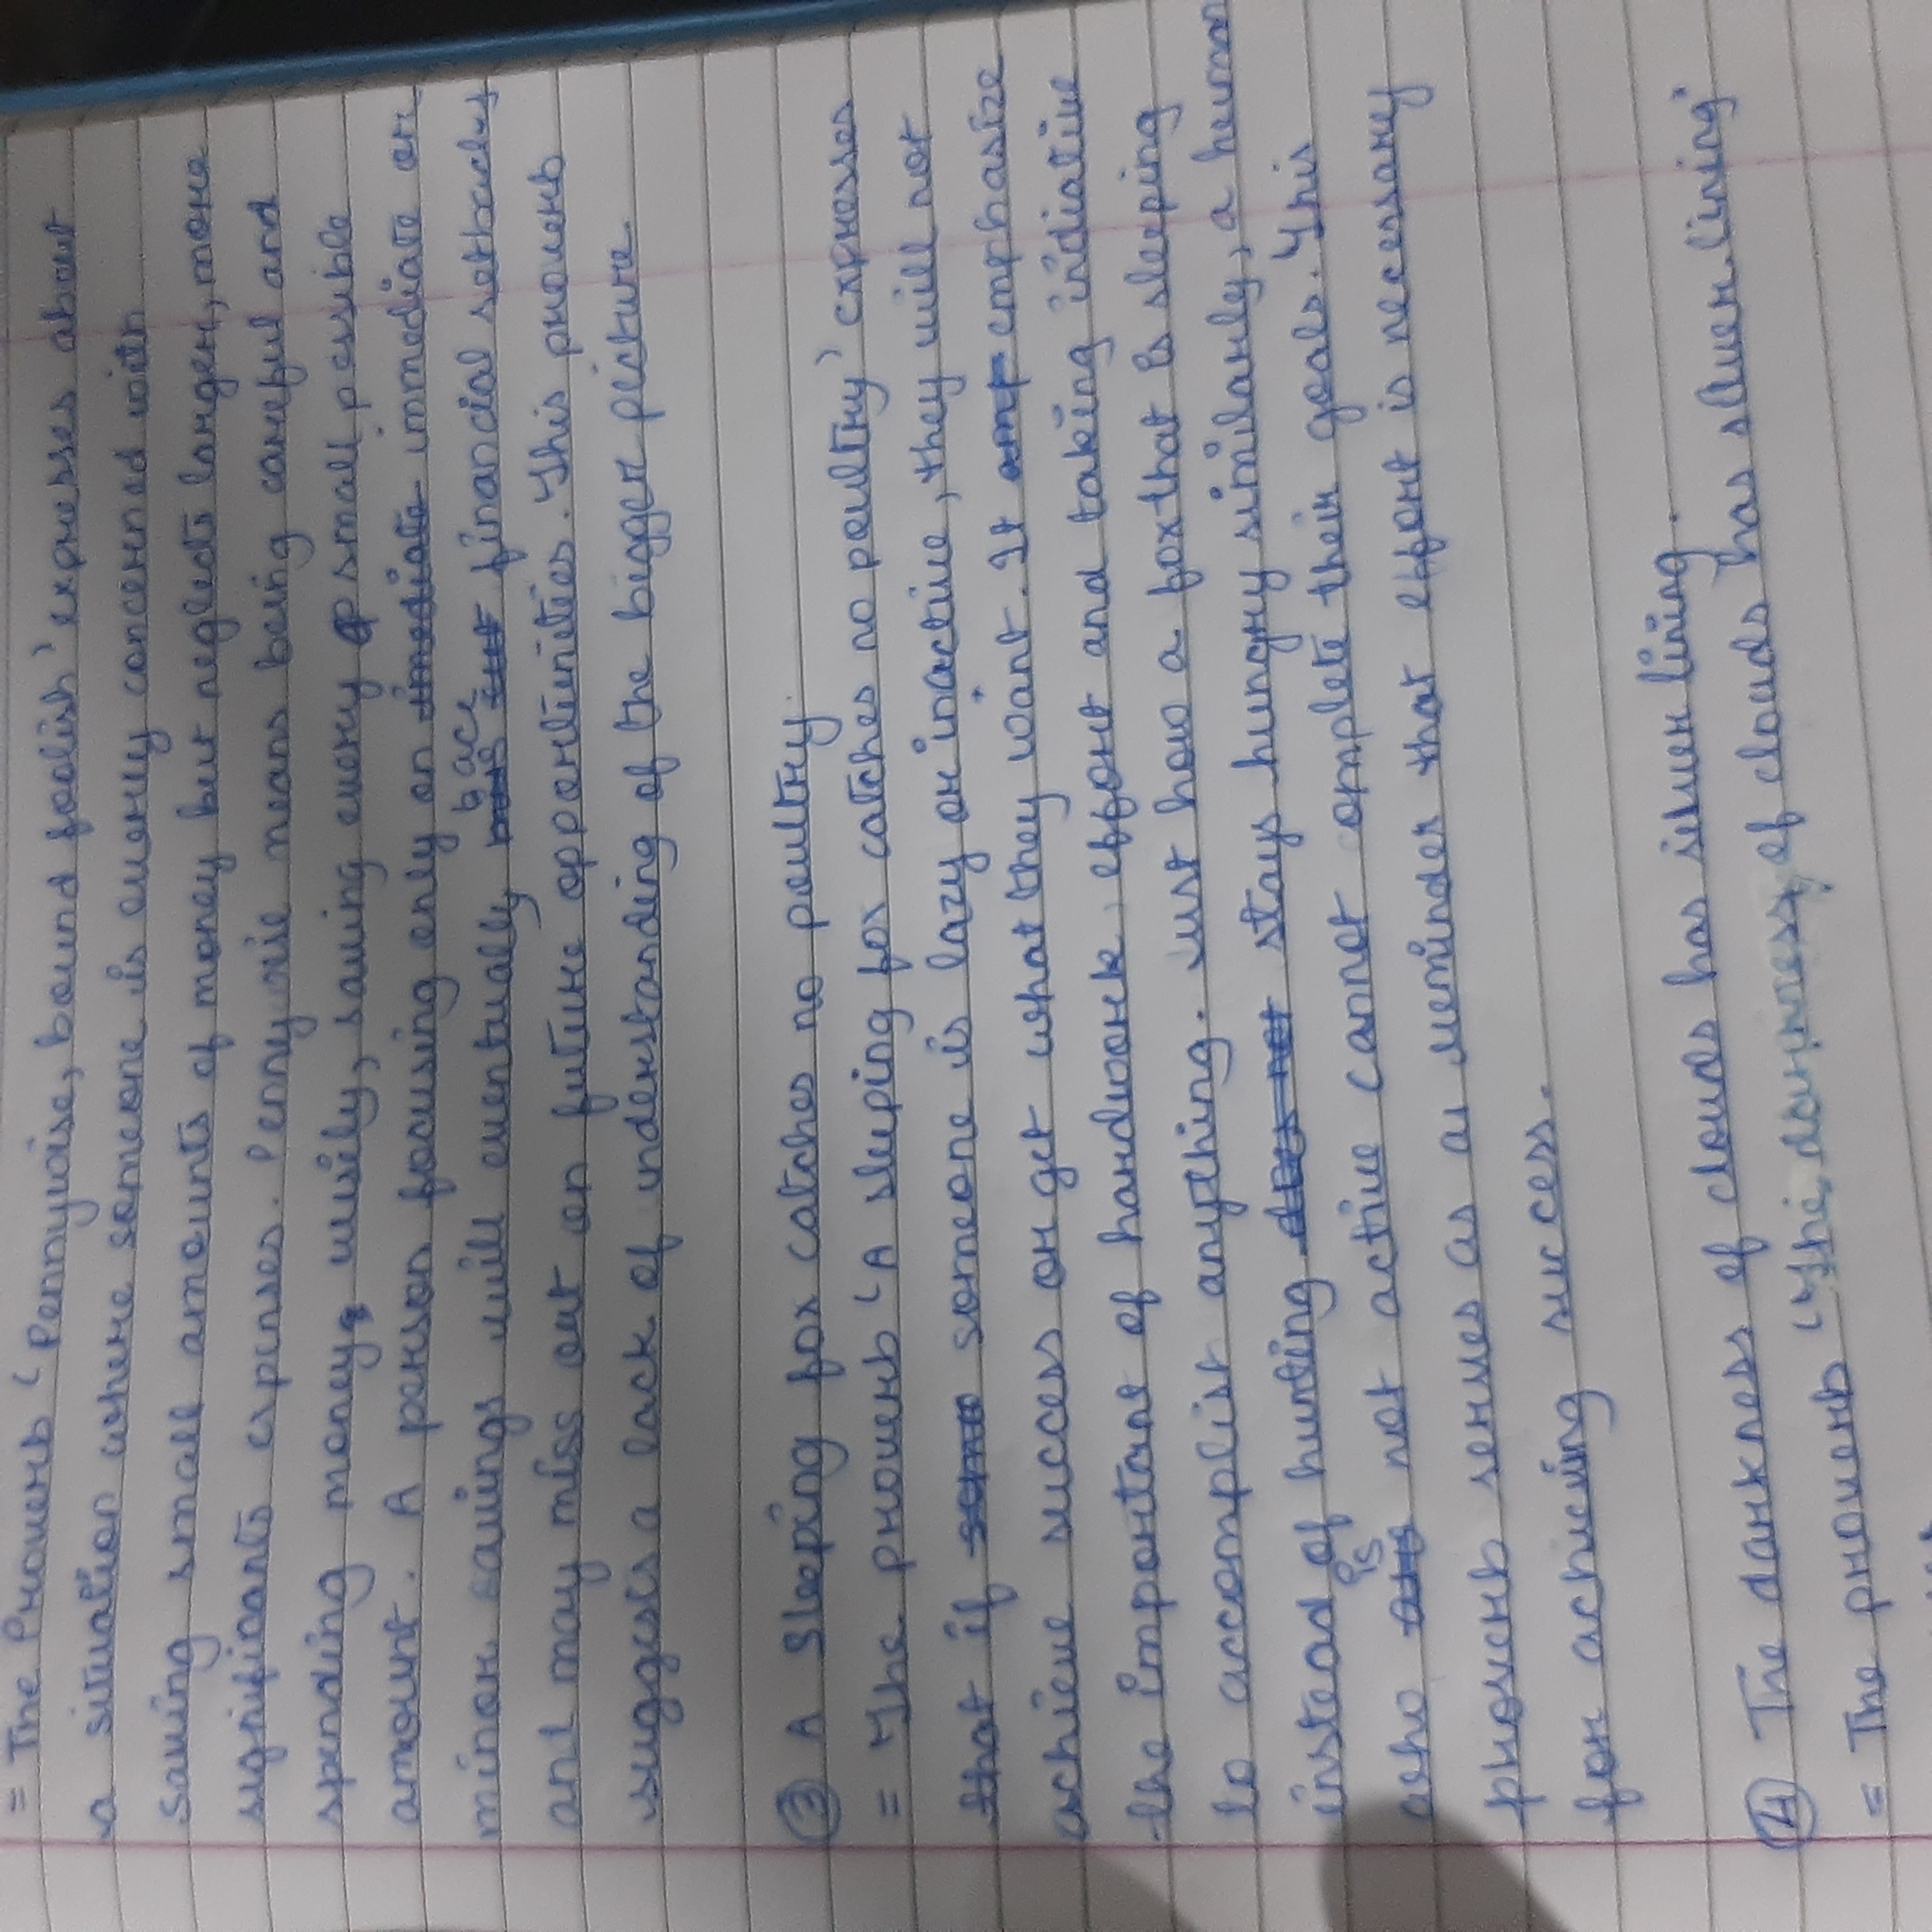 = The Proverb 'Pennywise, bound foolish' expresses about
a situation where someone is overly concerned with
saving small amounts of money but neglects larger, more
significants expenses. Penny wise means being careful and
spending money wisely, saving every small possible
amount. A person focusing only on immediate or
minor savings will eventually bace financial setbacks
and may miss out on future oppontinities. This proverb
suggests a lack of understanding of the bigger picture.
③ A Sleeping fox catches no poultry.
= The proverb 'A sleeping fox catches no poultry' expresses
that if someone is lazy or inactive, they will not
achieve success or get what they want. It emphasize
the importane of hardwork, effort and taking indiative
to accomplist anything. Just how a fox that is sleeping
instead of hunting stays hungry similarly, a human
who is not active cannot complete their goals. This
proverb serves as a reminder that effort is necessary
for achieving success.
④ The darkness of clouds has silver lining.
= The proverb 'The darkness of clouds has silver lining'